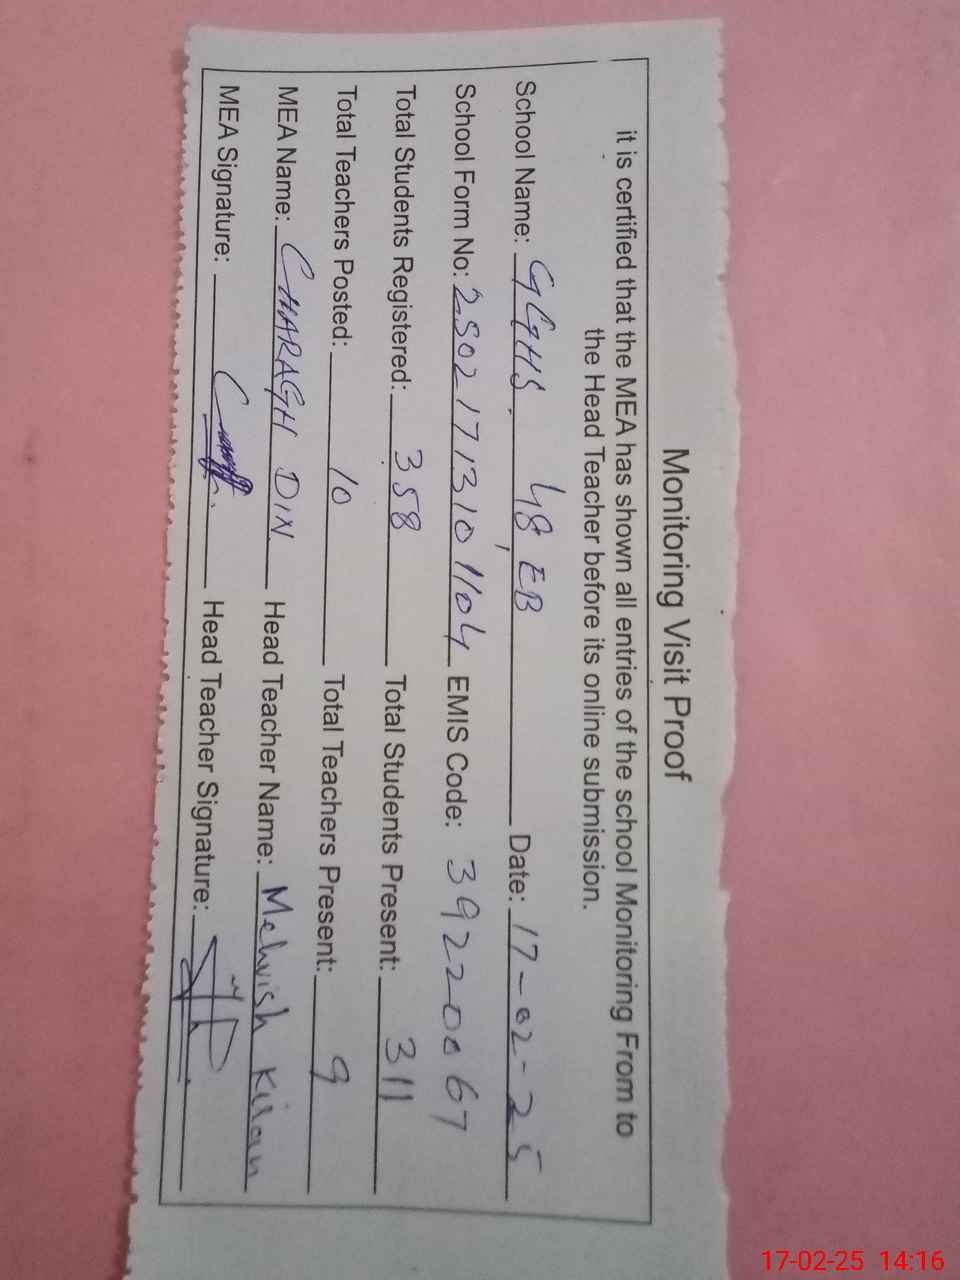 Monitoring Visit Proof
it is certified that the MEA has shown all entries of the school Monitoring From to
the Head Teacher before its online submission.
School Name: GGHS. 48, EB Date: 17-02-25
School Form No: 25021713101104 EMIS Code: 39220067
Total Students Registered: 358 Total Students Present: 311
Total Teachers Posted: 10 Total Teachers Present: 9
MEA Name: CHARAGH DIN Head Teacher Name: Mehvish Kiran
MEA Signature: Head Teacher Signature:
17-02-25 14:16